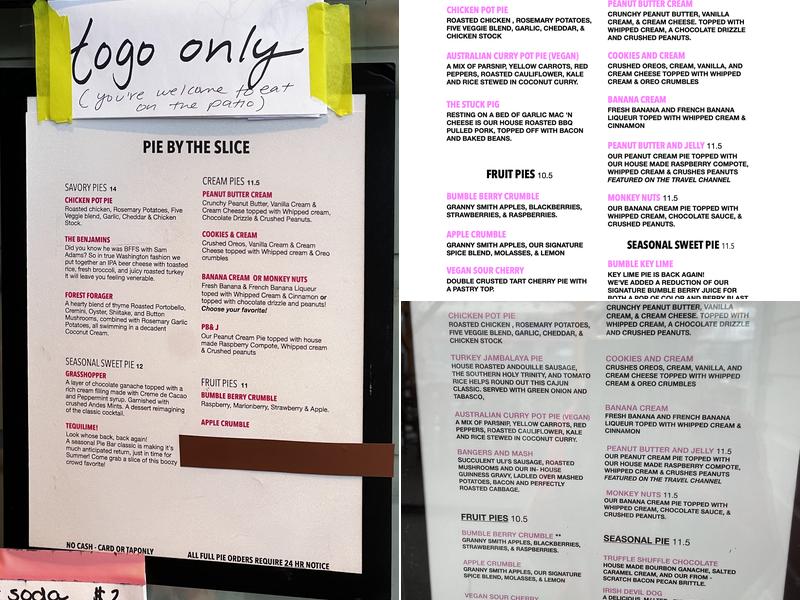 togo only
(you're welcome to eat
on the patio)
PIE BY THE SLICE
SAVORY PIES 14
CHICKEN POT PIE
Roasted chicken, Rosemary Potatoes, Five
Veggie blend, Garlic, Cheddar & Chicken
Stock.
THE BENJAMINS
Did you know he was BFFS with Sam
Adams? So in true Washington fashion we
put together an IPA beer cheese with toasted
rice, fresh broccoli, and juicy roasted turkey
it will leave you feeling venerable.
FOREST FORAGER
A hearty blend of thyme Roasted Portobello,
Cremini, Oyster, Shiitake, and Button
Mushrooms, combined with Rosemary Garlic
Potatoes, all swimming in a decadent
Coconut Cream.
SEASONAL SWEET PIE 12
GRASSHOPPER
A layer of chocolate ganache topped with a
rich cream filling made with Creme de Cacao
and Peppermint syrup. Garnished with
crushed Andes Mints. A dessert reimagining
of the classic cocktail.
TEQUILIME!
Look whose back, back again!
A seasonal Pie Bar classic is making it's
much anticipated return, just in time for
Summer! Come grab a slice of this boozy
crowd favorite!
CREAM PIES 11.5
PEANUT BUTTER CREAM
Crunchy Peanut Butter, Vanilla Cream &
Cream Cheese topped with Whipped cream,
Chocolate Drizzle & Crushed Peanuts.
COOKIES & CREAM
Crushed Oreos, Vanilla Cream & Cream
Cheese topped with Whipped cream & Oreo
crumbles
BANANA CREAM OR MONKEY NUTS
Fresh Banana & French Banana Liqueur
toped with Whipped Cream & Cinnamon or
topped with chocolate drizzle and peanuts!
Choose your favorite!
PB& J
Our Peanut Cream Pie topped with house
made Raspberry Compote, Whipped cream
& Crushed peanuts
FRUIT PIES 11
BUMBLE BERRY CRUMBLE
Raspberry, Marionberry, Strawberry & Apple.
APPLE CRUMBLE
NO CASH - CARD OR TAPONLY
ALL FULL PIE ORDERS REQUIRE 24 HR NOTICE
soda $2
CHICKEN POT PIE
ROASTED CHICKEN , ROSEMARY POTATOES,
FIVE VEGGIE BLEND, GARLIC, CHEDDAR, &
CHICKEN STOCK
AUSTRALIAN CURRY POT PIE (VEGAN)
A MIX OF PARSNIP, YELLOW CARROTS, RED
PEPPERS, ROASTED CAULIFLOWER, KALE
AND RICE STEWED IN COCONUT CURRY.
THE STUCK PIG
RESTING ON A BED OF GARLIC MAC 'N
CHEESE IS OUR HOUSE ROASTED BBQ
PULLED PORK, TOPPED OFF WITH BACON
AND BAKED BEANS.
FRUIT PIES 10.5
BUMBLE BERRY CRUMBLE
GRANNY SMITH APPLES, BLACKBERRIES,
STRAWBERRIES, & RASPBERRIES.
APPLE CRUMBLE
GRANNY SMITH APPLES, OUR SIGNATURE
SPICE BLEND, MOLASSES, & LEMON
VEGAN SOUR CHERRY
DOUBLE CRUSTED TART CHERRY PIE WITH
A PASTRY TOP.
PEANUT BUTTER CREAM
CRUNCHY PEANUT BUTTER, VANILLA
CREAM, & CREAM CHEESE. TOPPED WITH
WHIPPED CREAM, A CHOCOLATE DRIZZLE
AND CRUSHED PEANUTS.
COOKIES AND CREAM
CRUSHED OREOS, CREAM, VANILLA, AND
CREAM CHEESE TOPPED WITH WHIPPED
CREAM & OREO CRUMBLES
BANANA CREAM
FRESH BANANA AND FRENCH BANANA
LIQUEUR TOPED WITH WHIPPED CREAM &
CINNAMON
PEANUT BUTTER AND JELLY 11.5
OUR PEANUT CREAM PIE TOPPED WITH
OUR HOUSE MADE RASPBERRY COMPOTE,
WHIPPED CREAM, & CRUSHES PEANUTS
FEATURED ON THE TRAVEL CHANNEL
MONKEY NUTS 11.5
OUR BANANA CREAM PIE TOPPED WITH
WHIPPED CREAM, CHOCOLATE SAUCE, &
CRUSHED PEANUTS.
SEASONAL SWEET PIE 11.5
BUMBLE KEY LIME
KEY LIME PIE IS BACK AGAIN!
WE'VE ADDED A REDUCTION OF OUR
SIGNATURE BUMBLE BERRY JUICE FOR
BOTH A POP OF COLOR AND BERRY BLAST
CHICKEN POT PIE
ROASTED CHICKEN , ROSEMARY POTATOES,
FIVE VEGGIE BLEND, GARLIC, CHEDDAR, &
CHICKEN STOCK
TURKEY JAMBALAYA PIE
HOUSE ROASTED ANDOUILLE SAUSAGE,
THE SOUTHERN HOLY TRINITY, AND TOMATO
RICE HELPS ROUND OUT THIS CAJUN
CLASSIC. SERVED WITH GREEN ONION AND
TABASCO,
AUSTRALIAN CURRY POT PIE (VEGAN)
A MIX OF PARSNIP, YELLOW CARROTS, RED
PEPPERS, ROASTED CAULIFLOWER, KALE
AND RICE STEWED IN COCONUT CURRY.
BANGERS AND MASH
SUCCULENT ULI'S SAUSAGE, ROASTED
MUSHROOMS AND OUR IN- HOUSE
GUINNESS GRAVY, LADLED OVER MASHED
POTATOES, BACON AND PERFECTLY
ROASTED CABBAGE.
FRUIT PIES 10.5
BUMBLE BERRY CRUMBLE **
GRANNY SMITH APPLES, BLACKBERRIES,
STRAWBERRIES, & RASPBERRIES.
APPLE CRUMBLE
GRANNY SMITH APPLES, OUR SIGNATURE
SPICE BLEND, MOLASSES, & LEMON
VEGAN SOUR CHERRY
CRUNCHY PEANUT BUTTER, VANILLA
CREAM, & CREAM CHEESE. TOPPED WITH
WHIPPED CREAM, A CHOCOLATE DRIZZLE
AND CRUSHED PEANUTS.
COOKIES AND CREAM
CRUSHES OREOS, CREAM, VANILLA, AND
CREAM CHEESE TOPPED WITH WHIPPED
CREAM & OREO CRUMBLES
BANANA CREAM
FRESH BANANA AND FRENCH BANANA
LIQUEUR TOPED WITH WHIPPED CREAM &
CINNAMON
PEANUT BUTTER AND JELLY 11.5
OUR PEANUT CREAM PIE TOPPED WITH
OUR HOUSE MADE RASPBERRY COMPOTE,
WHIPPED CREAM, & CRUSHES PEANUTS
FEATURED ON THE TRAVEL CHANNEL
MONKEY NUTS 11.5
OUR BANANA CREAM PIE TOPPED WITH
WHIPPED CREAM, CHOCOLATE SAUCE, &
CRUSHED PEANUTS.
SEASONAL PIE 11.5
TRUFFLE SHUFFLE CHOCOLATE
HOUSE MADE BOURBON GANACHE, SALTED
CARAMEL CREAM, AND OUR FROM -
SCRATCH BACON PECAN BRITTLE.
IRISH DEVIL DOG
A DELICIOUS,